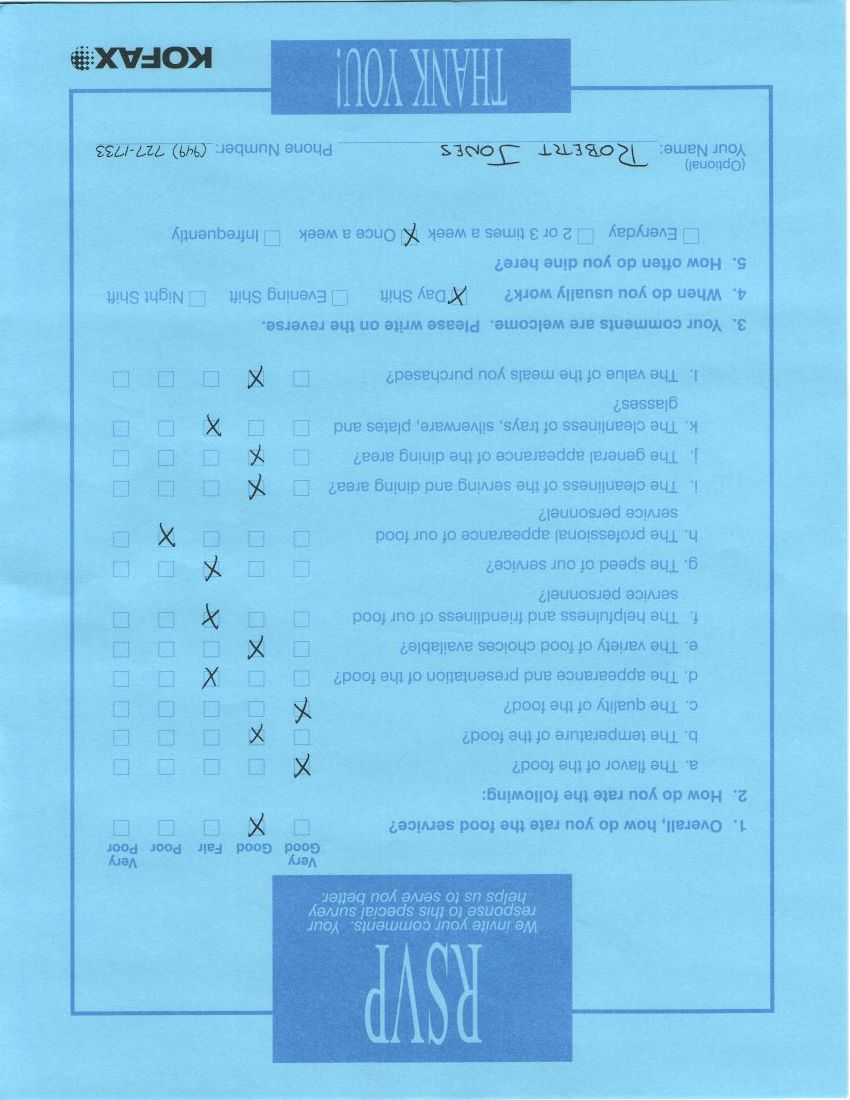 RSVP
We invite your comments. Your
response to this special survey
helps us to serve you better.
Very Good Good Fair Poor Very Poor
1. Overall, how do you rate the food service?
2. How do you rate the following:
a. The flavor of the food?
b. The temperature of the food?
c. The quality of the food?
d. The appearance and presentation of the food?
e. The variety of food choices available?
f. The helpfulness and friendliness of our food
service personnel?
g. The speed of our service?
h. The professional appearance of our food
service personnel?
i. The cleanliness of the serving and dining area?
j. The general appearance of the dining area?
k. The cleanliness of trays, silverware, plates and
glasses?
l. The value of the meals you purchased?
3. Your comments are welcome. Please write on the reverse.
4. When do you usually work? Day Shift Evening Shift Night Shift
5. How often do you dine here?
Everyday 2 or 3 times a week Once a week Infrequently
(Optional)
Your Name: ROBERT JONES Phone Number: (949) 727-1733
THANK YOU!
KOFAX